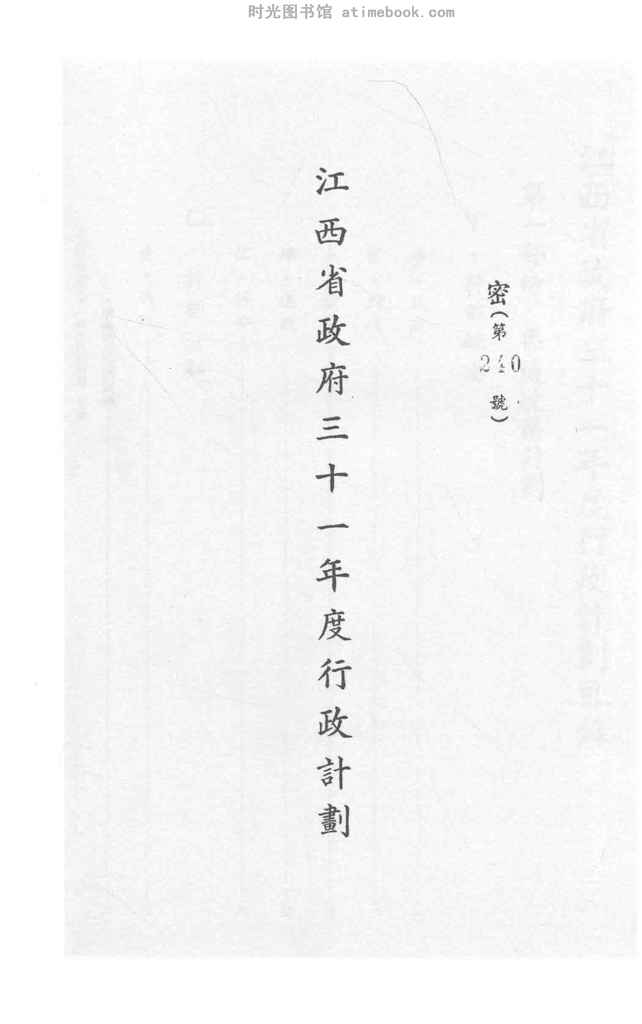 时光图书馆 atimebook.com
密(第240號)
江西省政府三十一年度行政計劃